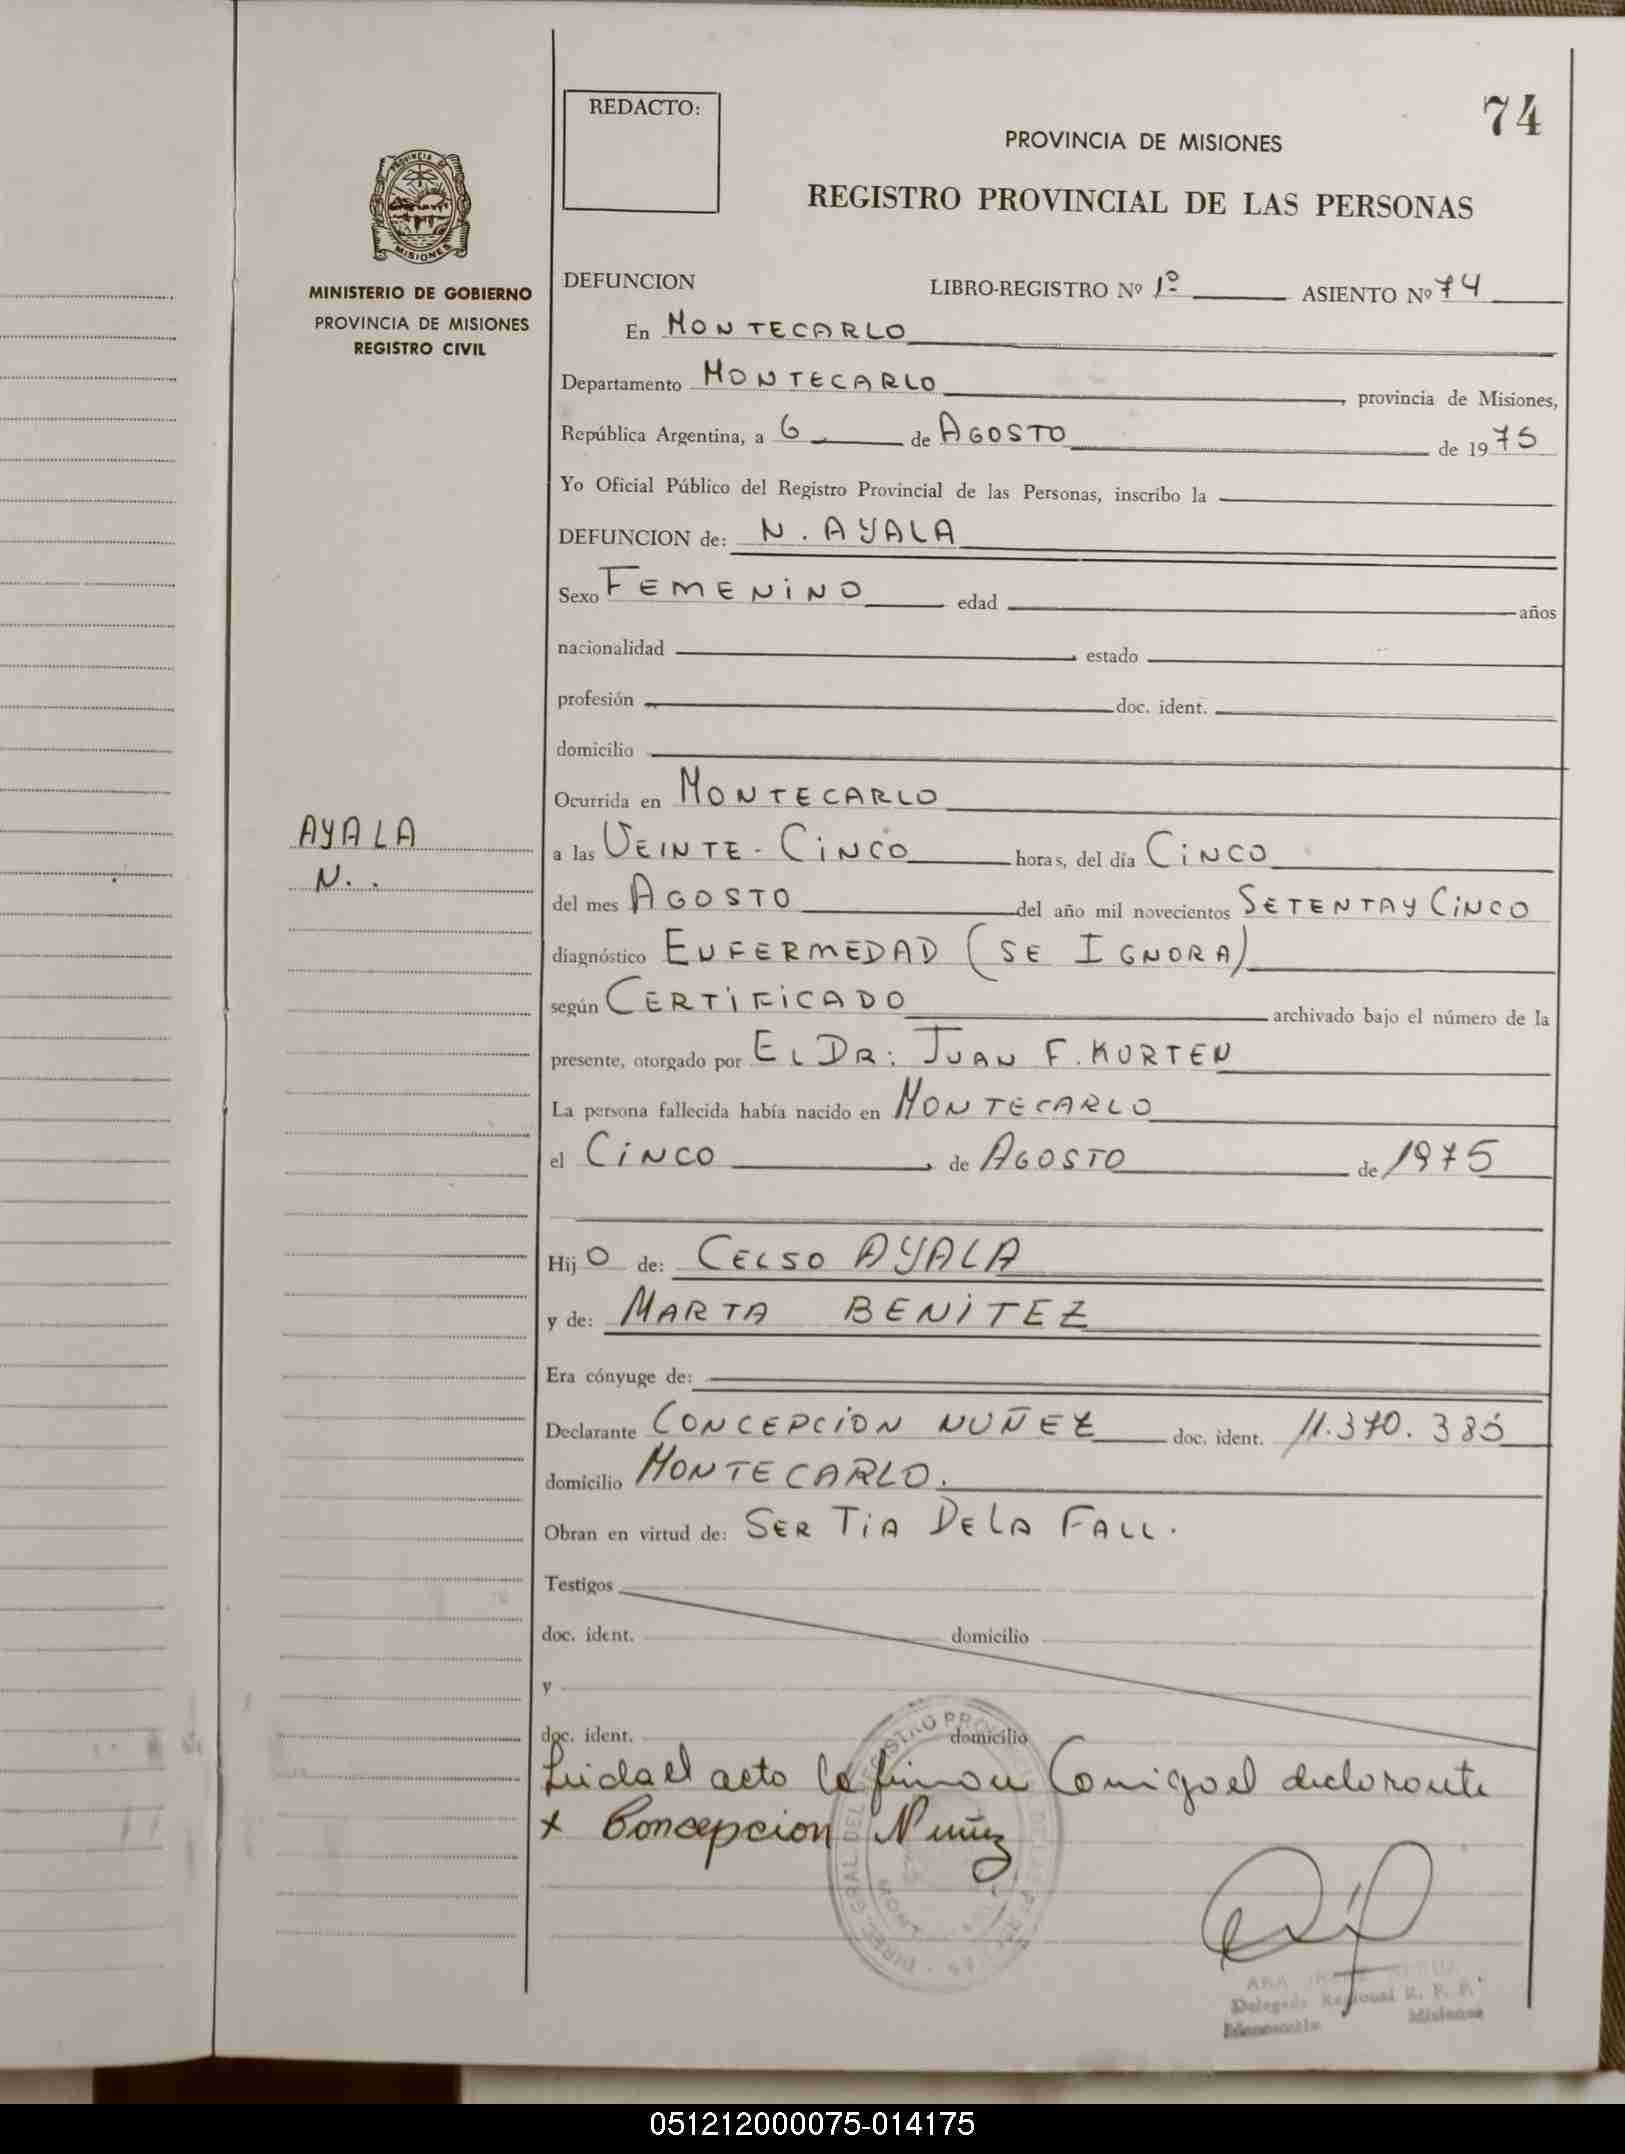 74
REDACTO:
PROVINCIA DE MISIONES
REGISTRO PROVINCIAL DE LAS PERSONAS
PROVINCIA DE
MISIONES
MINISTERIO DE GOBIERNO
PROVINCIA DE MISIONES
REGISTRO CIVIL
DEFUNCION LIBRO-REGISTRO Nº 1º ASIENTO Nº 74
En MONTECARLO
Departamento MONTECARLO, provincia de Misiones,
República Argentina, a 6 de AGOSTO de 1975
Yo Oficial Público del Registro Provincial de las Personas, inscribo la
DEFUNCION de: N. AYALA
Sexo FEMENINO edad años
nacionalidad estado
profesión doc. ident.
domicilio
Ocurrida en MONTECARLO
AYALA
N..
a las VEINTE-CINCO horas, del día CINCO
del mes AGOSTO del año mil novecientos SETENTA Y CINCO
diagnóstico ENFERMEDAD (SE IGNORA)
según CERTIFICADO archivado bajo el número de la
presente, otorgado por EL DR: JUAN F. KURTEN
La persona fallecida había nacido en MONTECARLO
el CINCO de AGOSTO de 1975
Hijo de: CELSO AYALA
y de: MARTA BENITEZ
Era cónyuge de:
Declarante CONCEPCIÓN NUÑEZ doc. ident. 11.370.385
domicilio MONTECARLO.
Obran en virtud de: SER TIA DE LA FALL.
Testigos
doc. ident. domicilio
y
doc. ident. domicilio
Leida el acto la firman Comigo el declarante
x Concepcion Nuñez
Delegada Regional R. P. P.
Montecarlo Misiones
051212000075-014175